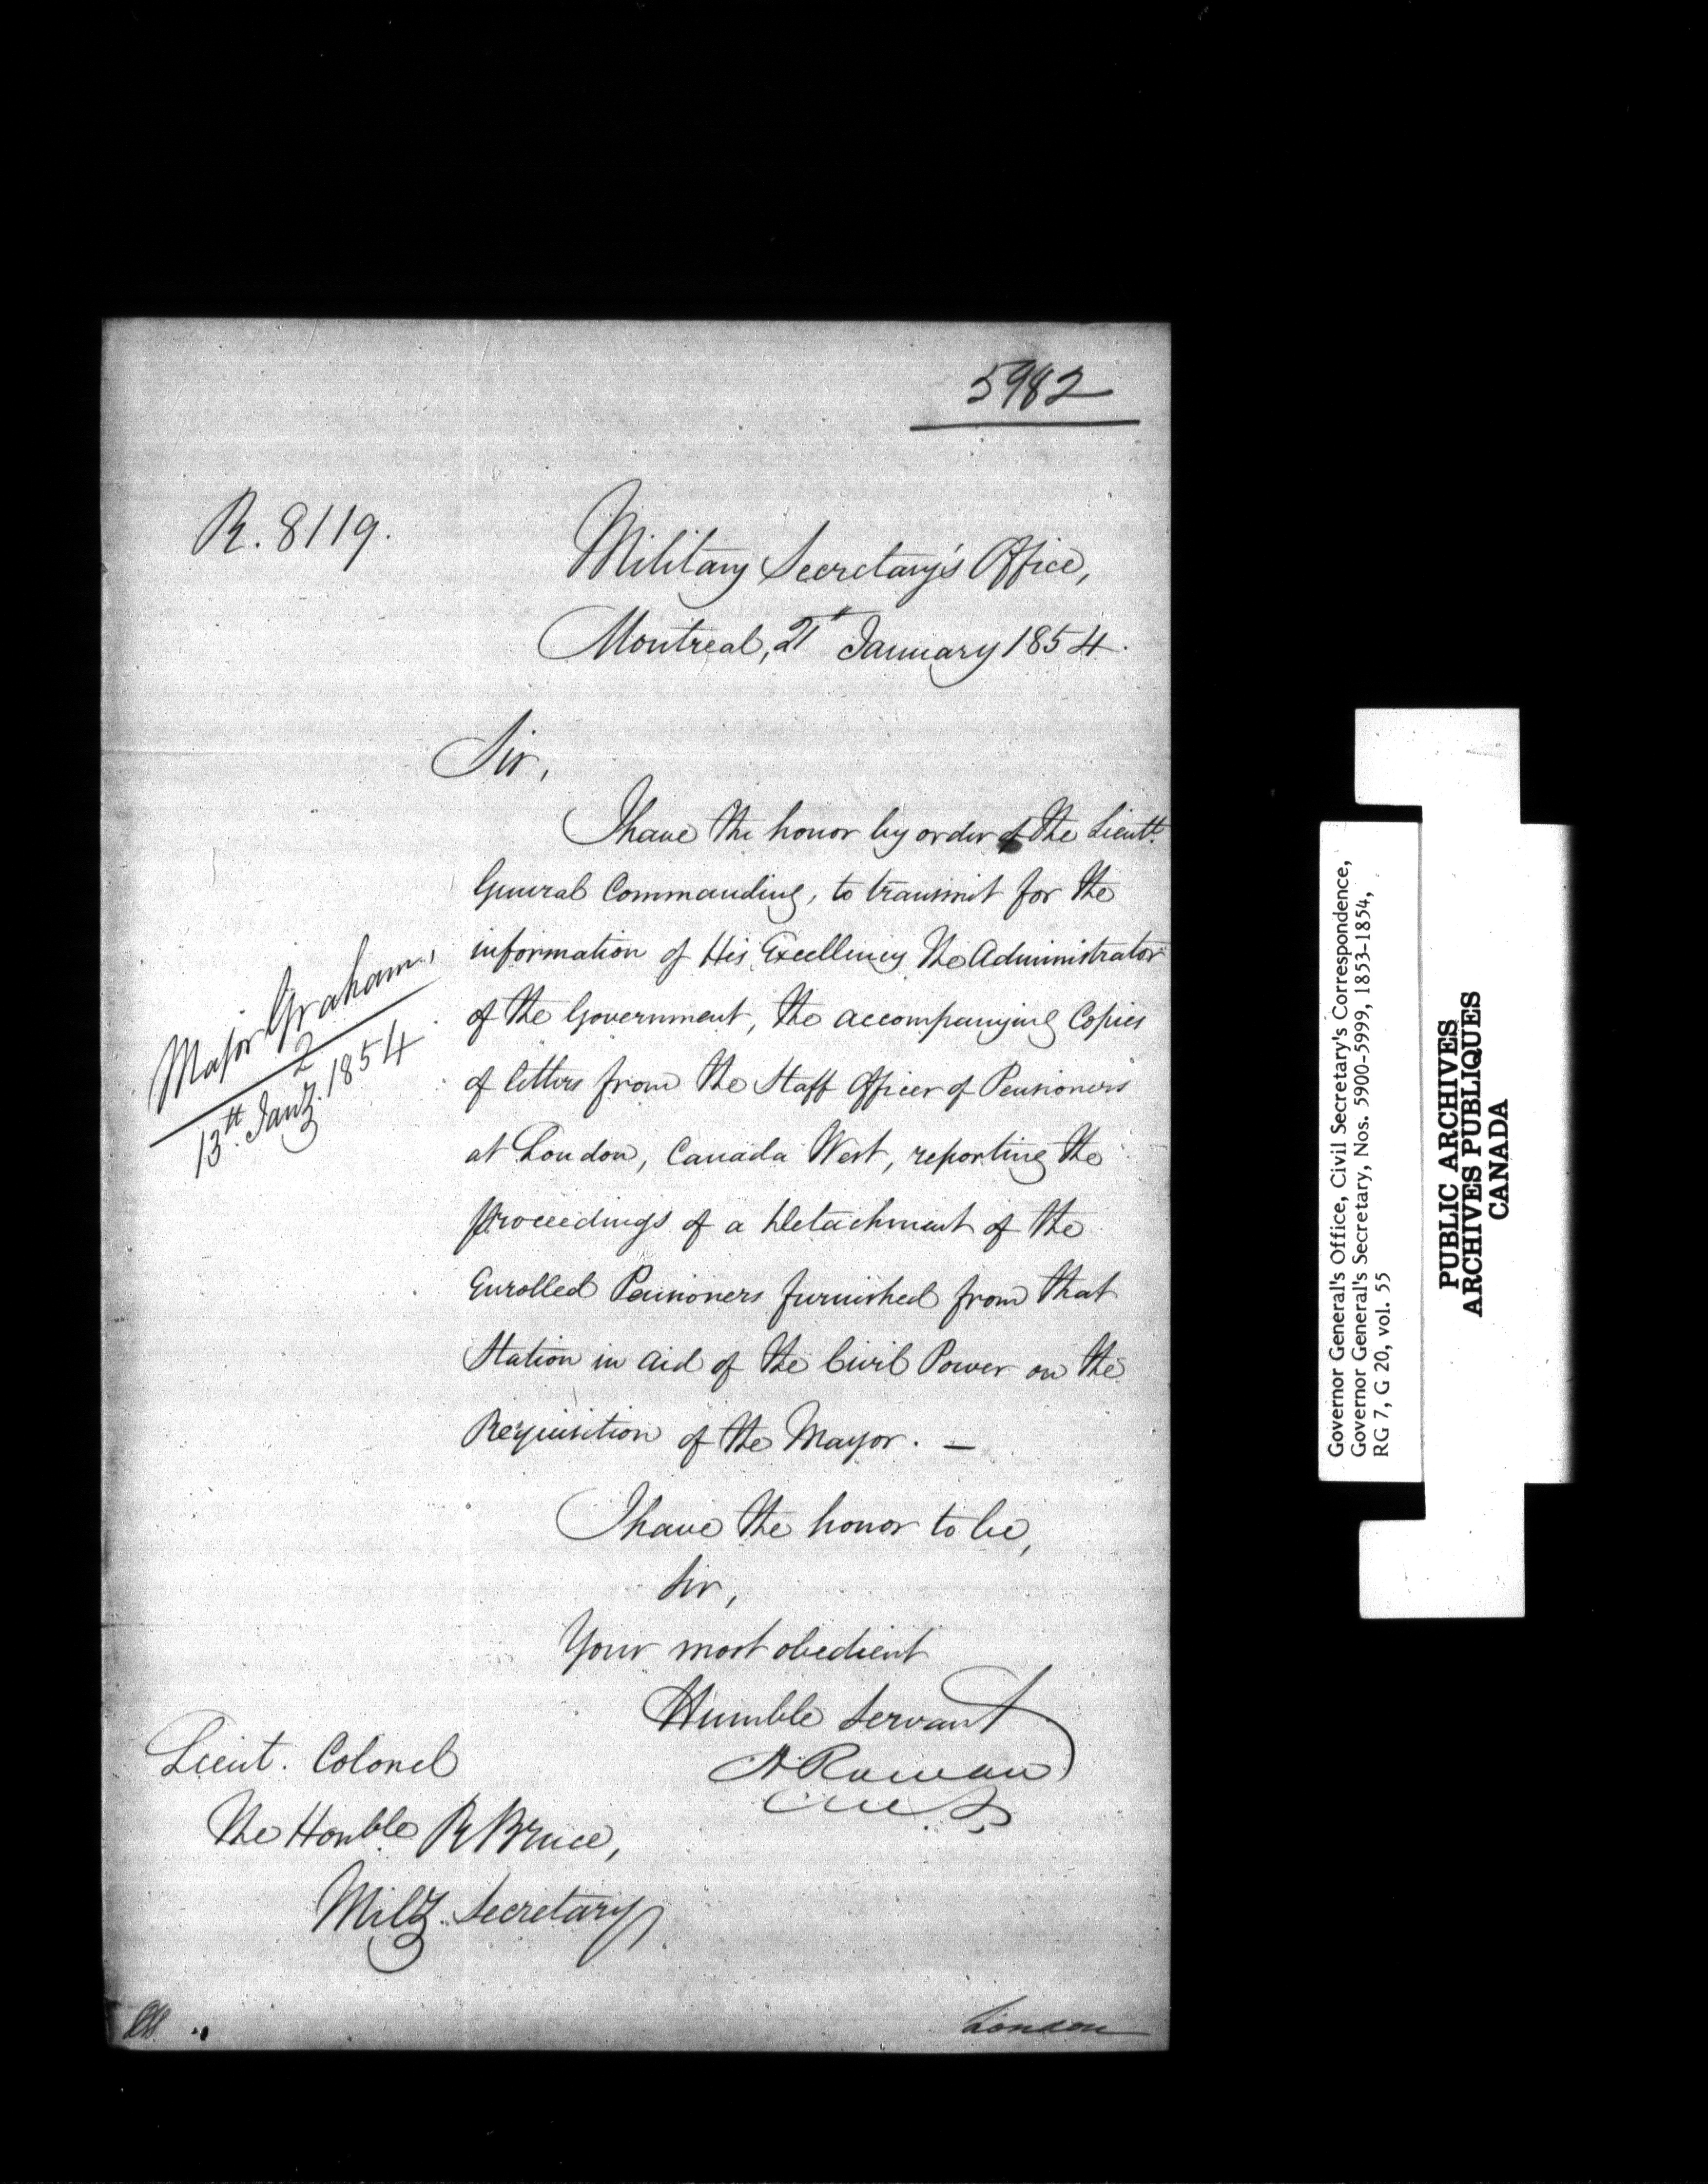 5982
R. 8119.
Military Secretary's Office,
Montreal, 21st January 1854.
Sir,
I have the honor by order of the Lieutt.
General Commanding, to transmit for the
information of His Excellency the Administrator
of the Government, the accompanying Copies
of letters from the Staff Officer of Pensioners
at London, Canada West, reporting the
proceedings of a Detachment of the
Enrolled Pensioners furnished from that
Station in aid of the Civil Power on the
Requisition of the Mayor. —
Major Graham,
2
13th. Jany. 1854
I have the honor to be,
Sir,
Your most obedient
Humble Servant
Lieut. Colonel
The Honble R Bruce,
Mily. Secretary
London
Governor General's Office, Civil Secretary's Correspondence,
Governor General's Secretary, Nos. 5900-5999, 1853-1854,
RG 7, G 20, vol. 55
PUBLIC ARCHIVES
ARCHIVES PUBLIQUES
CANADA